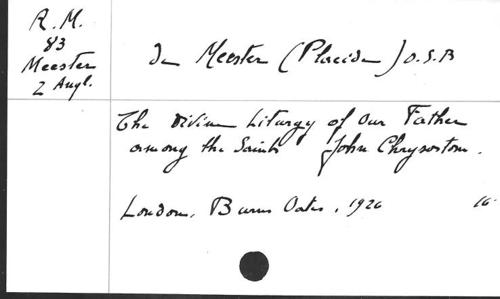 R. M.
83
Meester
2 Angl.
De Meester (Placide) O.S.B
The Divine Liturgy of Our Father
among the Saints John Chrysostom.
London, Burns Oates, 1926
16.